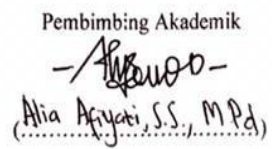 Pembimbing Akademik
(Alia Afiyati, S.S., M.Pd)